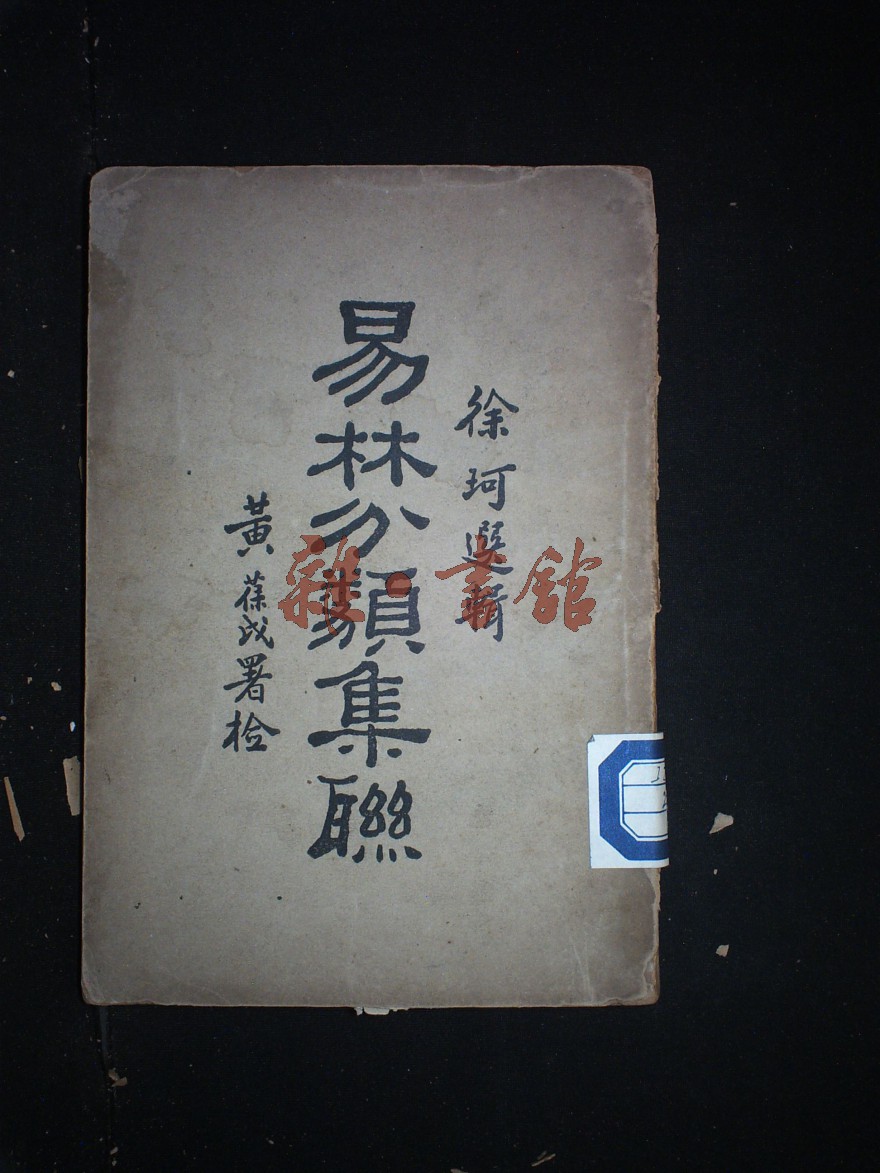 徐珂選輯
易林分類集聯
黃葆戉署檢
雜·書館